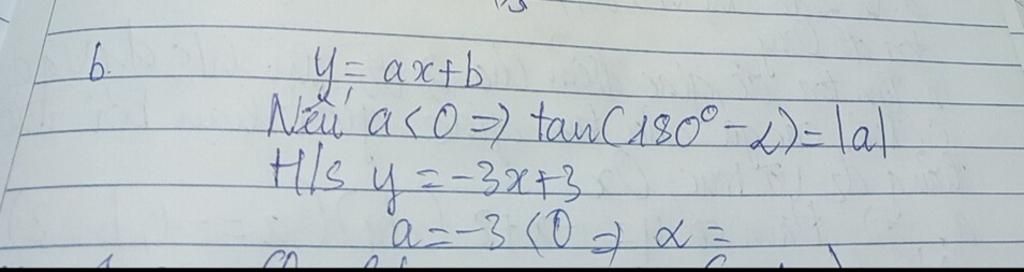 b. y = ax+b
Nếu a<0 => tan(180° - α) = |a|
H/s y = -3x+3
a = -3 < 0 => α =